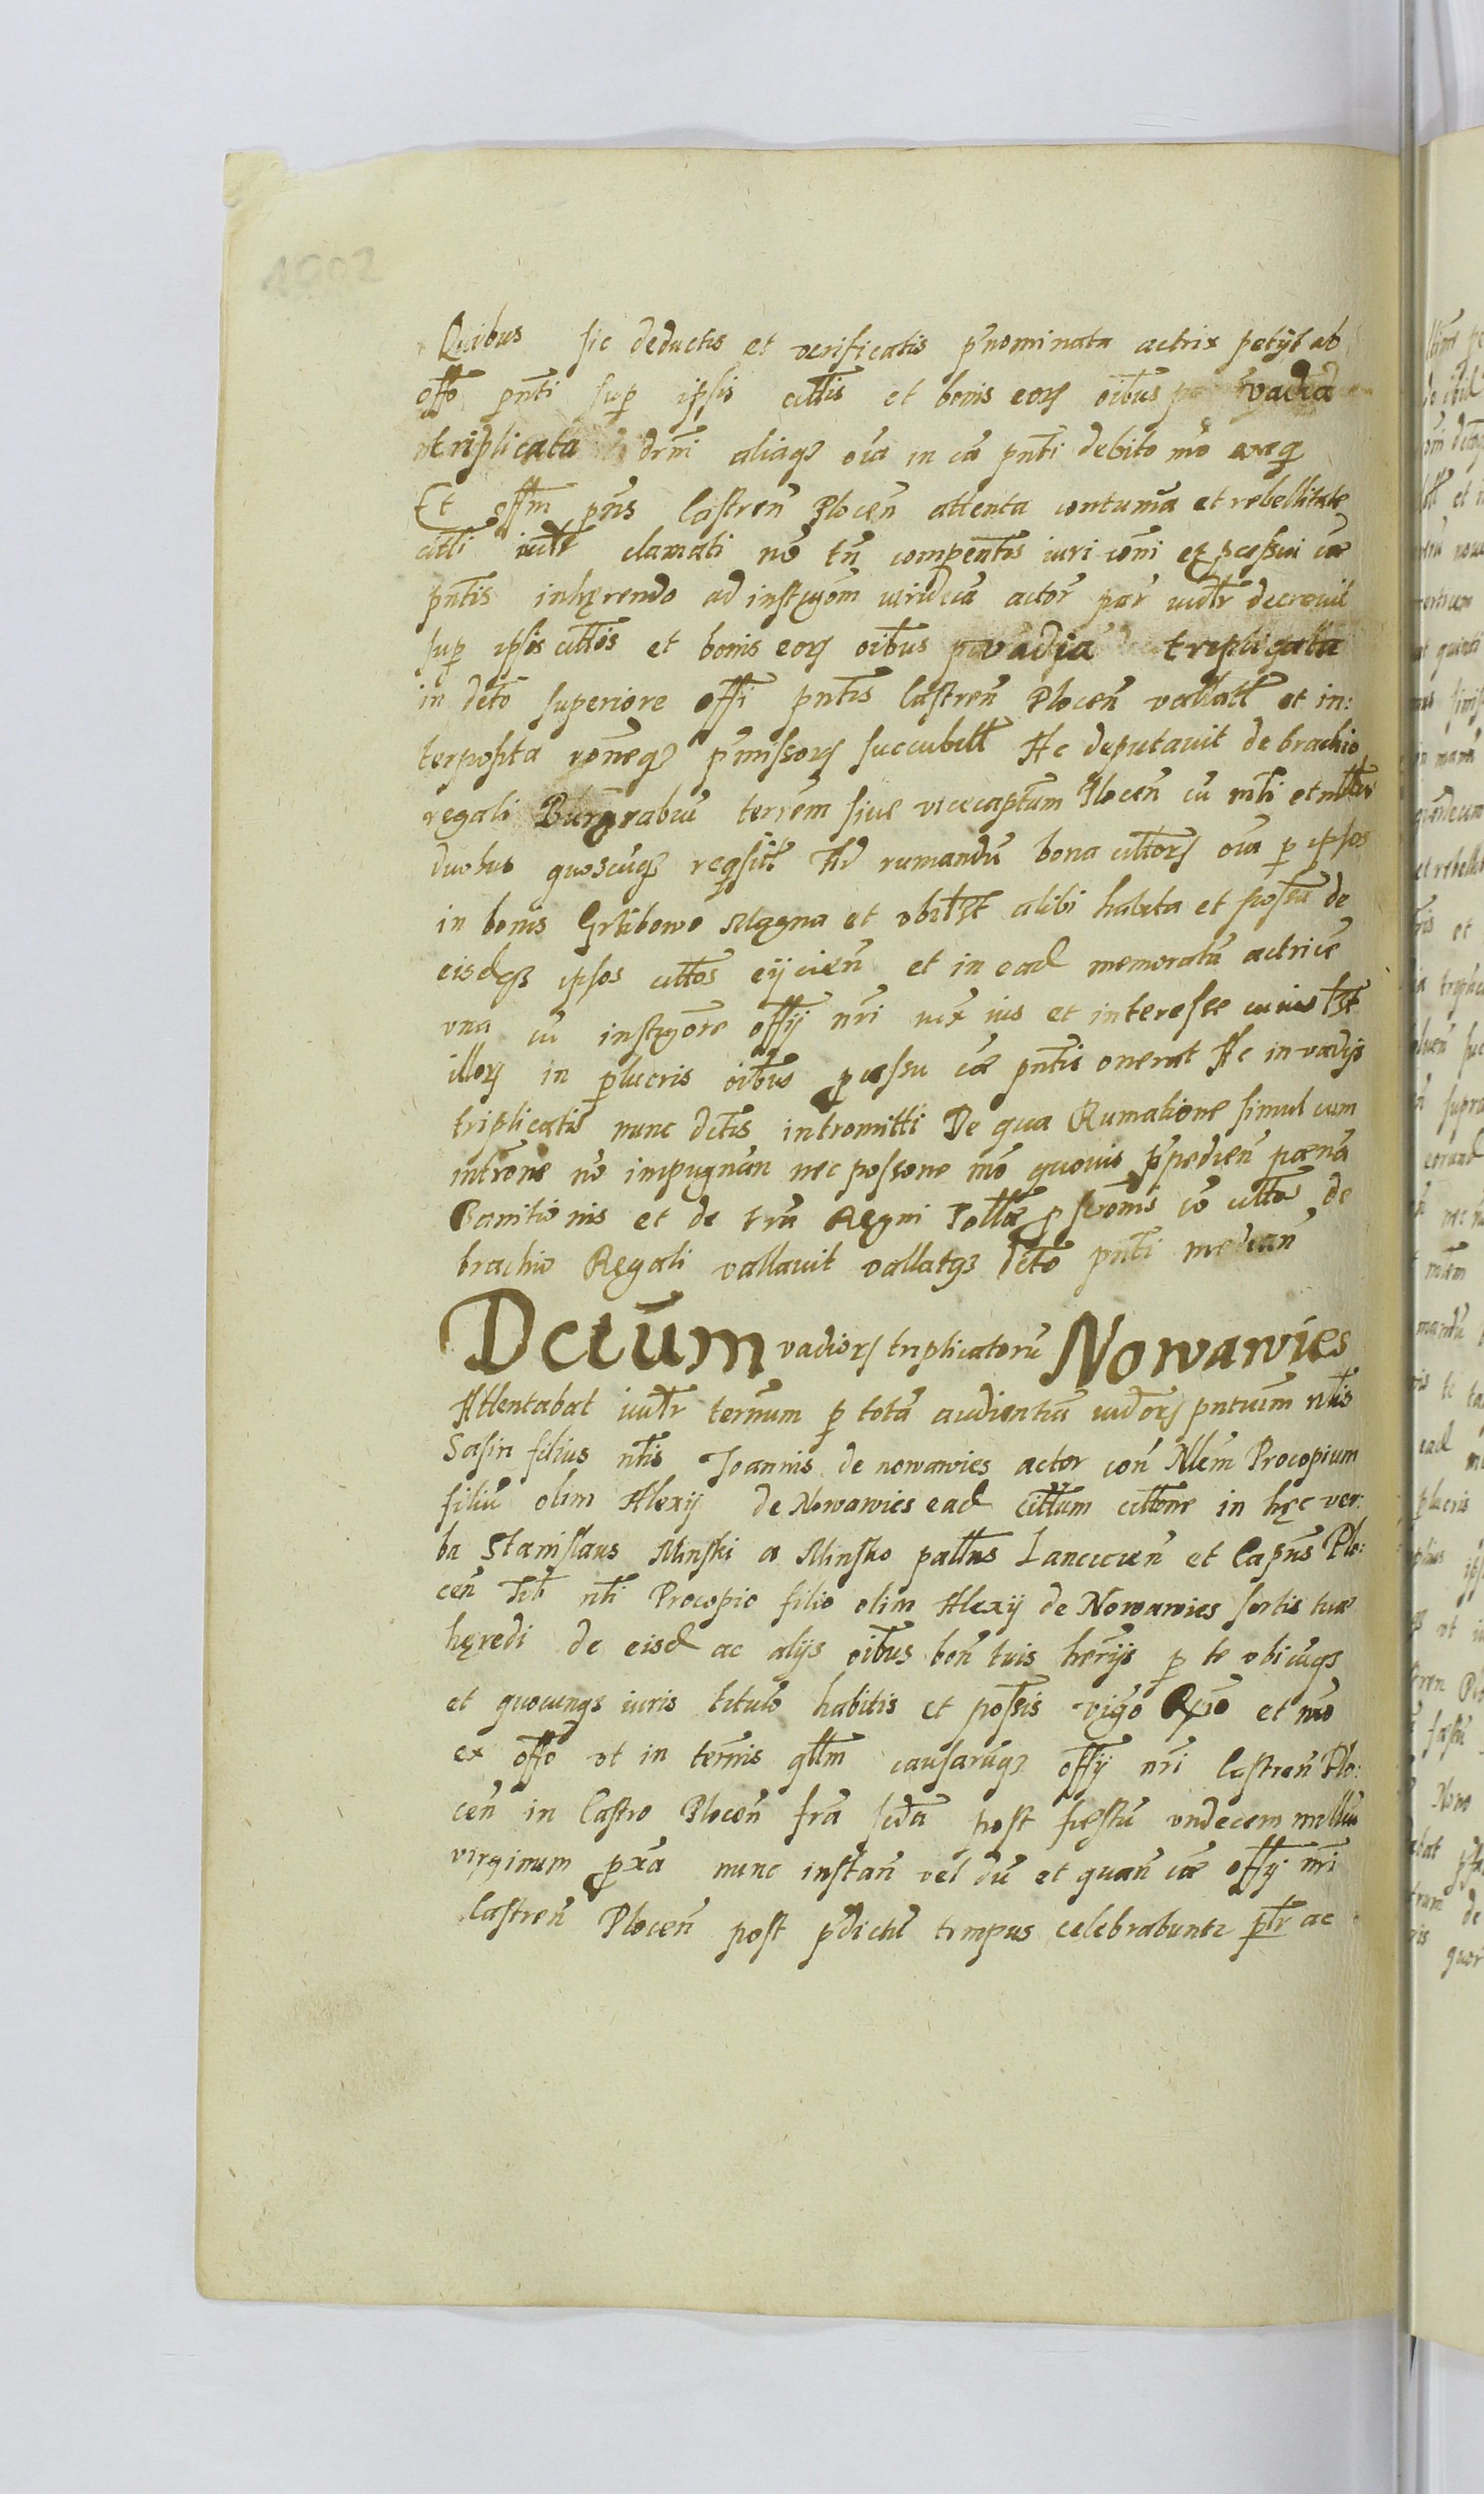 1002
Quibus sic deductis et verificatis p̃nominata actrix petijt ab
offo pñti sup ipsis cittis et bonis eorꝫ oibus vadia
triplicata drñi aliaqꝫ oĩa in cã pñti debito mõ exeq
Et offm pñs Castreñ Plocen̄ attenta contumã et rebellitate
citti iudtr clamati nõ tñ comparentis iuri coñi et pcessui cæ
pñtis inhęrendo ad instyom̃ actor par iudtr decrevit
sup ipsis cittis et bonis eorꝫ oibus vadia triplicata
in dcto superiore offi pñtis Castreñ Plocen̄ vallatt et in:
terposita p̃missorꝫ succubitt Ac deputavit de brachio
regali Burgrabiũ terrem sive vicecaptum Plocen̄ cũ
duobus quoscũqꝫ reqsitt Ad rumandũ bona cittorꝫ oĩa p ipsos
in bonis Gribowo Magna et alibi habita et possa de
eisdqꝫ ipsos cittos eijcieñ et in ead memoratã actricẽ
vna cũ instyore offij nri ius et interesse
illorꝫ in plucris oibus pcessu cæ pñtis onerat Ac in vadijs
triplicatis nunc dctis intromitti De qua Rumatione simul cum
introne nõ impugnan nec possone mõ quovis p̃pedieñ pænã
Banitionis et de Regni Pollæ citto de
brachio Regali vallavit vallatqꝫ dcto pñti median̄
Dctum vadiorꝫ triplicatorũ Nowawies
Attentabat iudtr ternum p totã audientiã iudorꝫ pñtium nblis
Sasin filius nblis Joannis de nowawies actor con̄ Nlem Procopium
filiũ olim Alexij de Nowawies ead cittum cittone in hęc ver:
ba Stanislaus Minski a Minsko pallus Lancicieñ et Capñs Plo:
cen̄ Tib nbli Procopio filio olim Alexij de Nowawies sortis tuæ
hęredi de eisd ac alijs oibus bon̄ tuis herijs p te vbicũqꝫ
et quocunqꝫ iuris titulo habitis et possis et mõ
ex offo vt in ternis qllm causarũqꝫ offij nri Castreñ Plo:
cen̄ in Castro Plocen̄ fra scda post fæstũ vndecem milliũ
virginum pxa nunc instan̄ vel dũ et quan̄ cæ offij nri
Castreñ Plocen̄ post p̃dictũ tempus celebrabuntr ptr ac